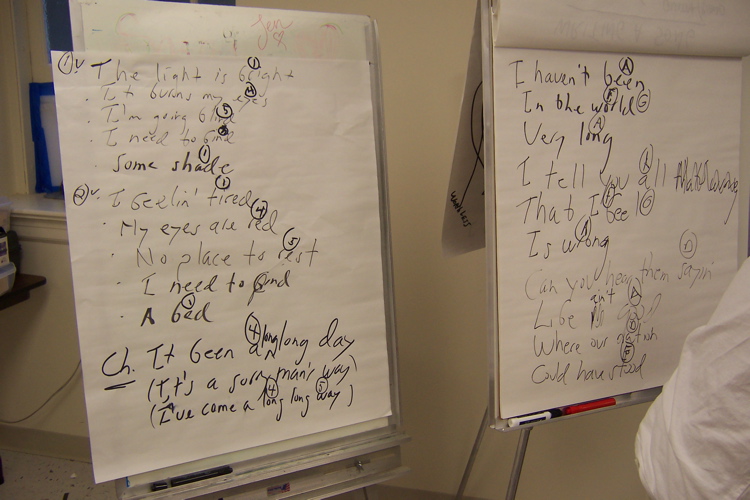 Jen
① v. The light is bright ①
· It burns my eyes ④
· I'm going blind ⑤
· I need to find
· Some shade ①
② v. I feelin' tired ①
· My eyes are red ④
· No place to rest ⑤
· I need to find
· A bed ①
Ch. It been a long long day ④
(It's a sorry man's way)
(I've come a long long way) ④ ⑤
I haven't been Ⓐ
In the world Ⓖ
Very long Ⓐ
I tell you all
That I feel Ⓖ
Is wrong Ⓐ
Can you hear them sayin'
Life ain't
Where our
Could have stood